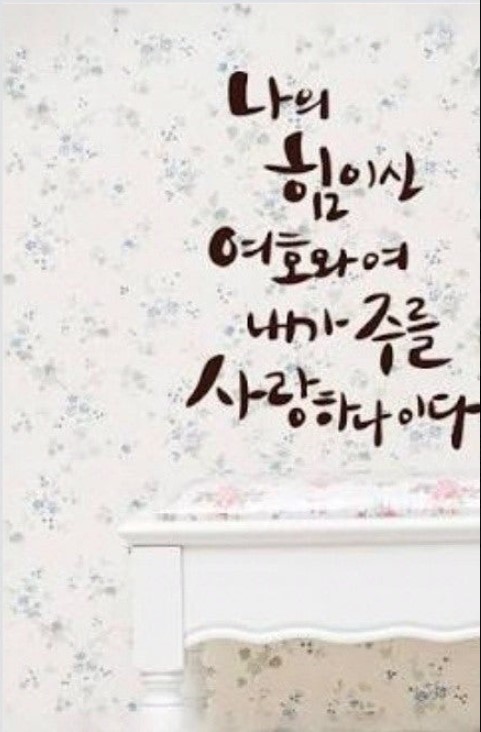 나의
힘이신
여호와여
내가 주를
사랑하나이다